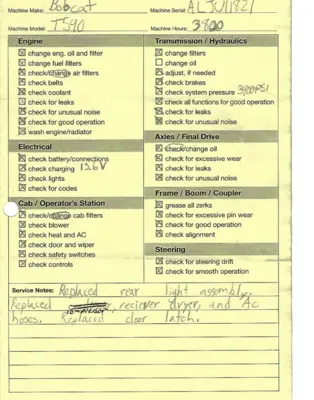 Machine Make: Bobcat Machine Serial: ALJU11821
Machine Model: T590 Machine Hours: 3800
Engine
change eng. oil and filter
change fuel filters
check/change air filters
check belts
check coolant
check for leaks
check for unusual noise
check for good operation
wash engine/radiator
Electrical
check battery/connections
check charging 13.6V
check lights
check for codes
Cab / Operator's Station
check/change cab filters
check blower
check heat and AC
check door and wiper
check safety switches
check controls
Transmission / Hydraulics
change filters
change oil
adjust, if needed
check brakes
check system pressure 3400PSI
check all functions for good operation
check for leaks
check for unusual noise
Axles / Final Drive
check/change oil
check for excessive wear
check for leaks
check for unusual noise
Frame / Boom / Coupler
grease all zerks
check for excessive pin wear
check for good operation
check alignment
Steering
check for steering drift
check for smooth operation
Service Notes: Replaced rear light assembly.
Replaced compressor, reciever dryer, and Ac
hoses. Replaced door latch.